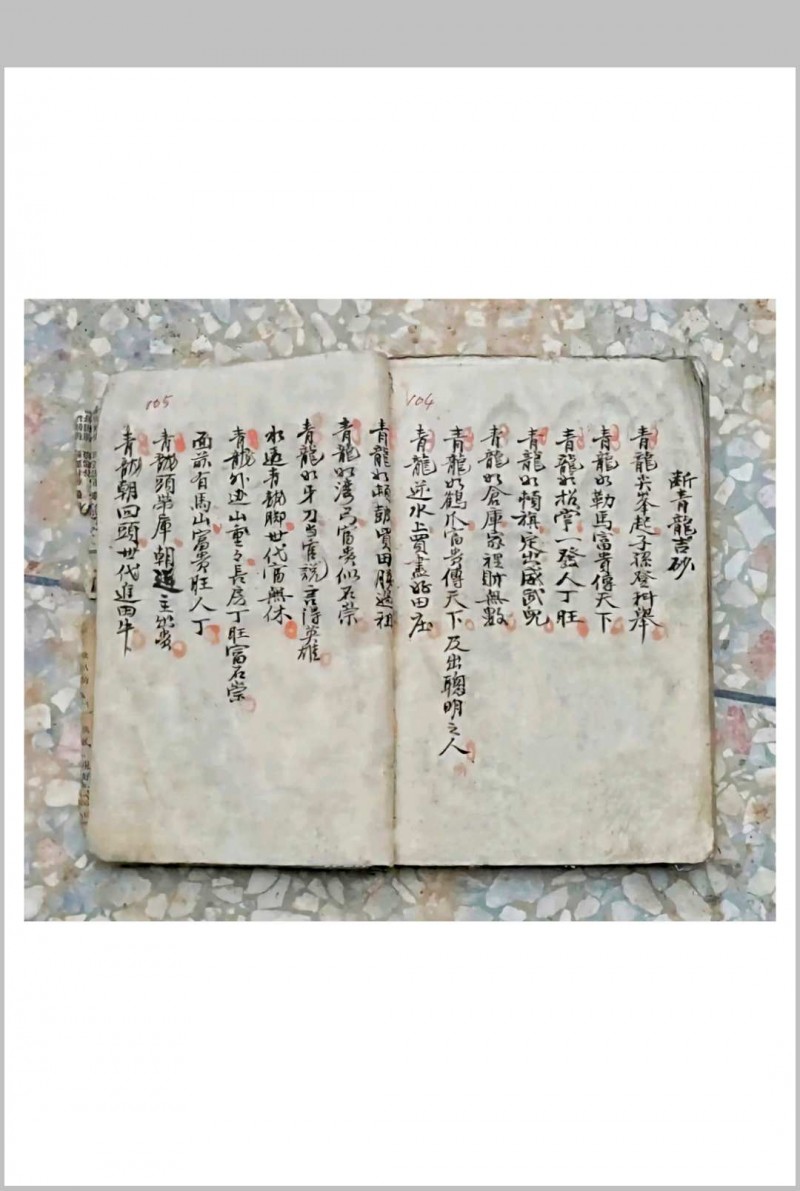 104
斷青龍吉砂
青龍尖峯起子孫登科舉
青龍如勒馬富貴傳天下
青龍如招掌一發人丁旺
青龍如順旗定出威武
青龍如倉庫家裡財無數
青龍如鶴爪富貴傳天下及出聰明之人
青龍逆水上買盡好田庄
105
青龍如朝買田勝過祖
青龍如湾弓富貴似石崇
青龍如牙刀当官說言得英雄
水遶青龍脚世代富無休
青龍外边山重々長房丁旺富石崇
面前有馬山富貴旺人丁
青龍頭帶庫朝迎主出貴
青龍朝回頭世代進田牛